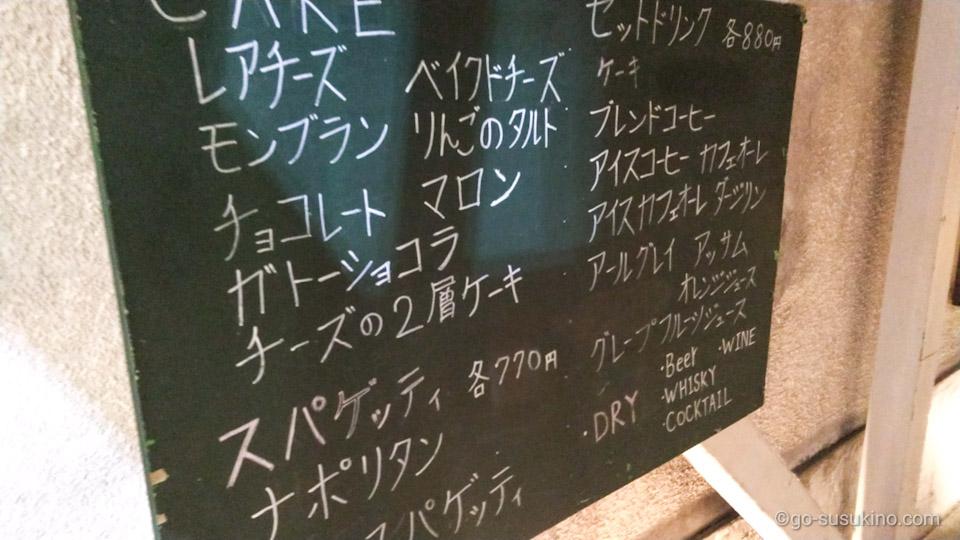 CAKE
レアチーズ ベイクドチーズ
モンブラン りんごのタルト
チョコレート マロン
ガトーショコラ
チーズの2層ケーキ
スパゲッティ 各770円
ナポリタン
スパゲッティ
セットドリンク 各880円
ケーキ
ブレンドコーヒー
アイスコーヒー カフェオーレ
アイスカフェオーレ ダージリン
アールグレイ アッサム
オレンジジュース
グレープフルーツジュース
・Beer ・WINE
・DRY ・WHISKY
・COCKTAIL
©go-susukino.com